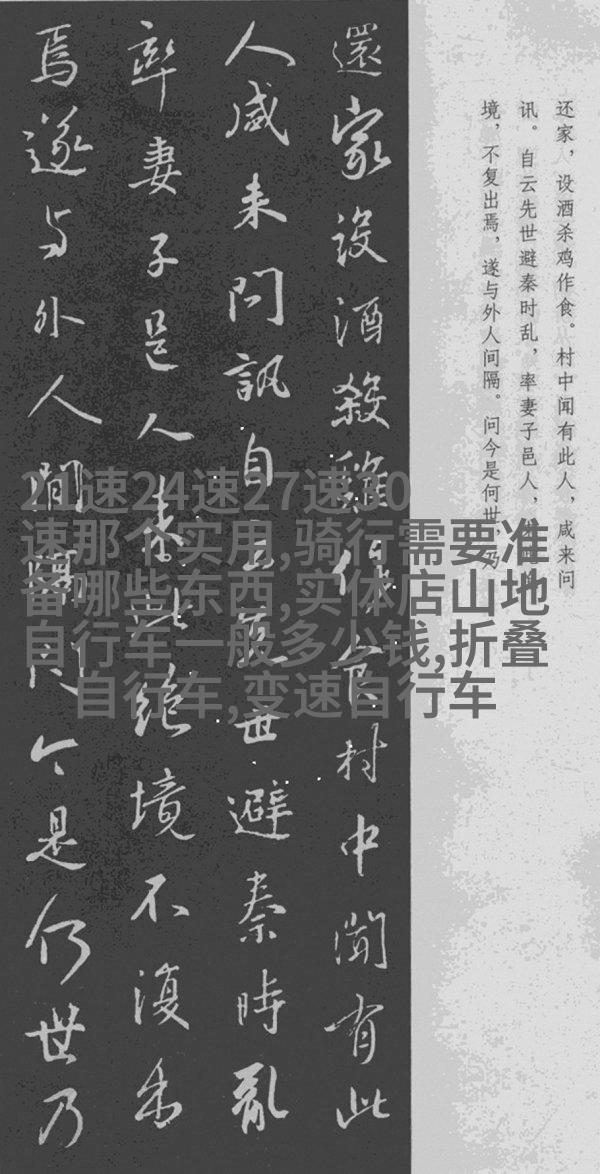 还家，设酒杀鸡作食。村中闻有此人，咸来问
讯。自云先世避秦时乱，率妻子邑人，
境，不复出焉，遂与外人间隔。问今是何世，乃
還家設酒殺雞作食村中聞有此
人咸来問訊自云先世避秦時亂
率妻子邑人来此絶境不復出
焉遂与外人間隔问今是何世乃
21速24速27速30
速那个实用,骑行需要准
备哪些东西,实体店山地
自行车一般多少钱,折叠
自行车,变速自行车